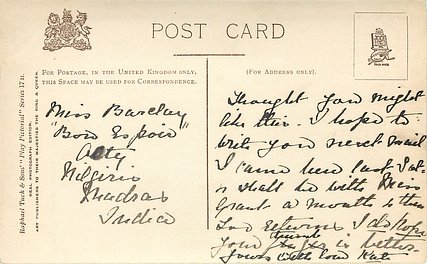 POST CARD
FOR POSTAGE, IN THE UNITED KINGDOM ONLY,
THIS SPACE MAY BE USED FOR CORRESPONDENCE.
(FOR ADDRESS ONLY.)
Raphael Tuck & Sons' "Play Pictorial" Series
REAL PHOTOGRAPH EDITION.
ART PUBLISHERS TO THEIR MAJESTIES THE KING & QUEEN.
Miss Barclay
"Bon Espoir"
Nilgiris
Madras
India
Thought you might
like this. I hope to
write you next mail
I came here last Sat
& shall be with Miss
Grant a month & then
I do hope
your is better.
Yours with love Kate